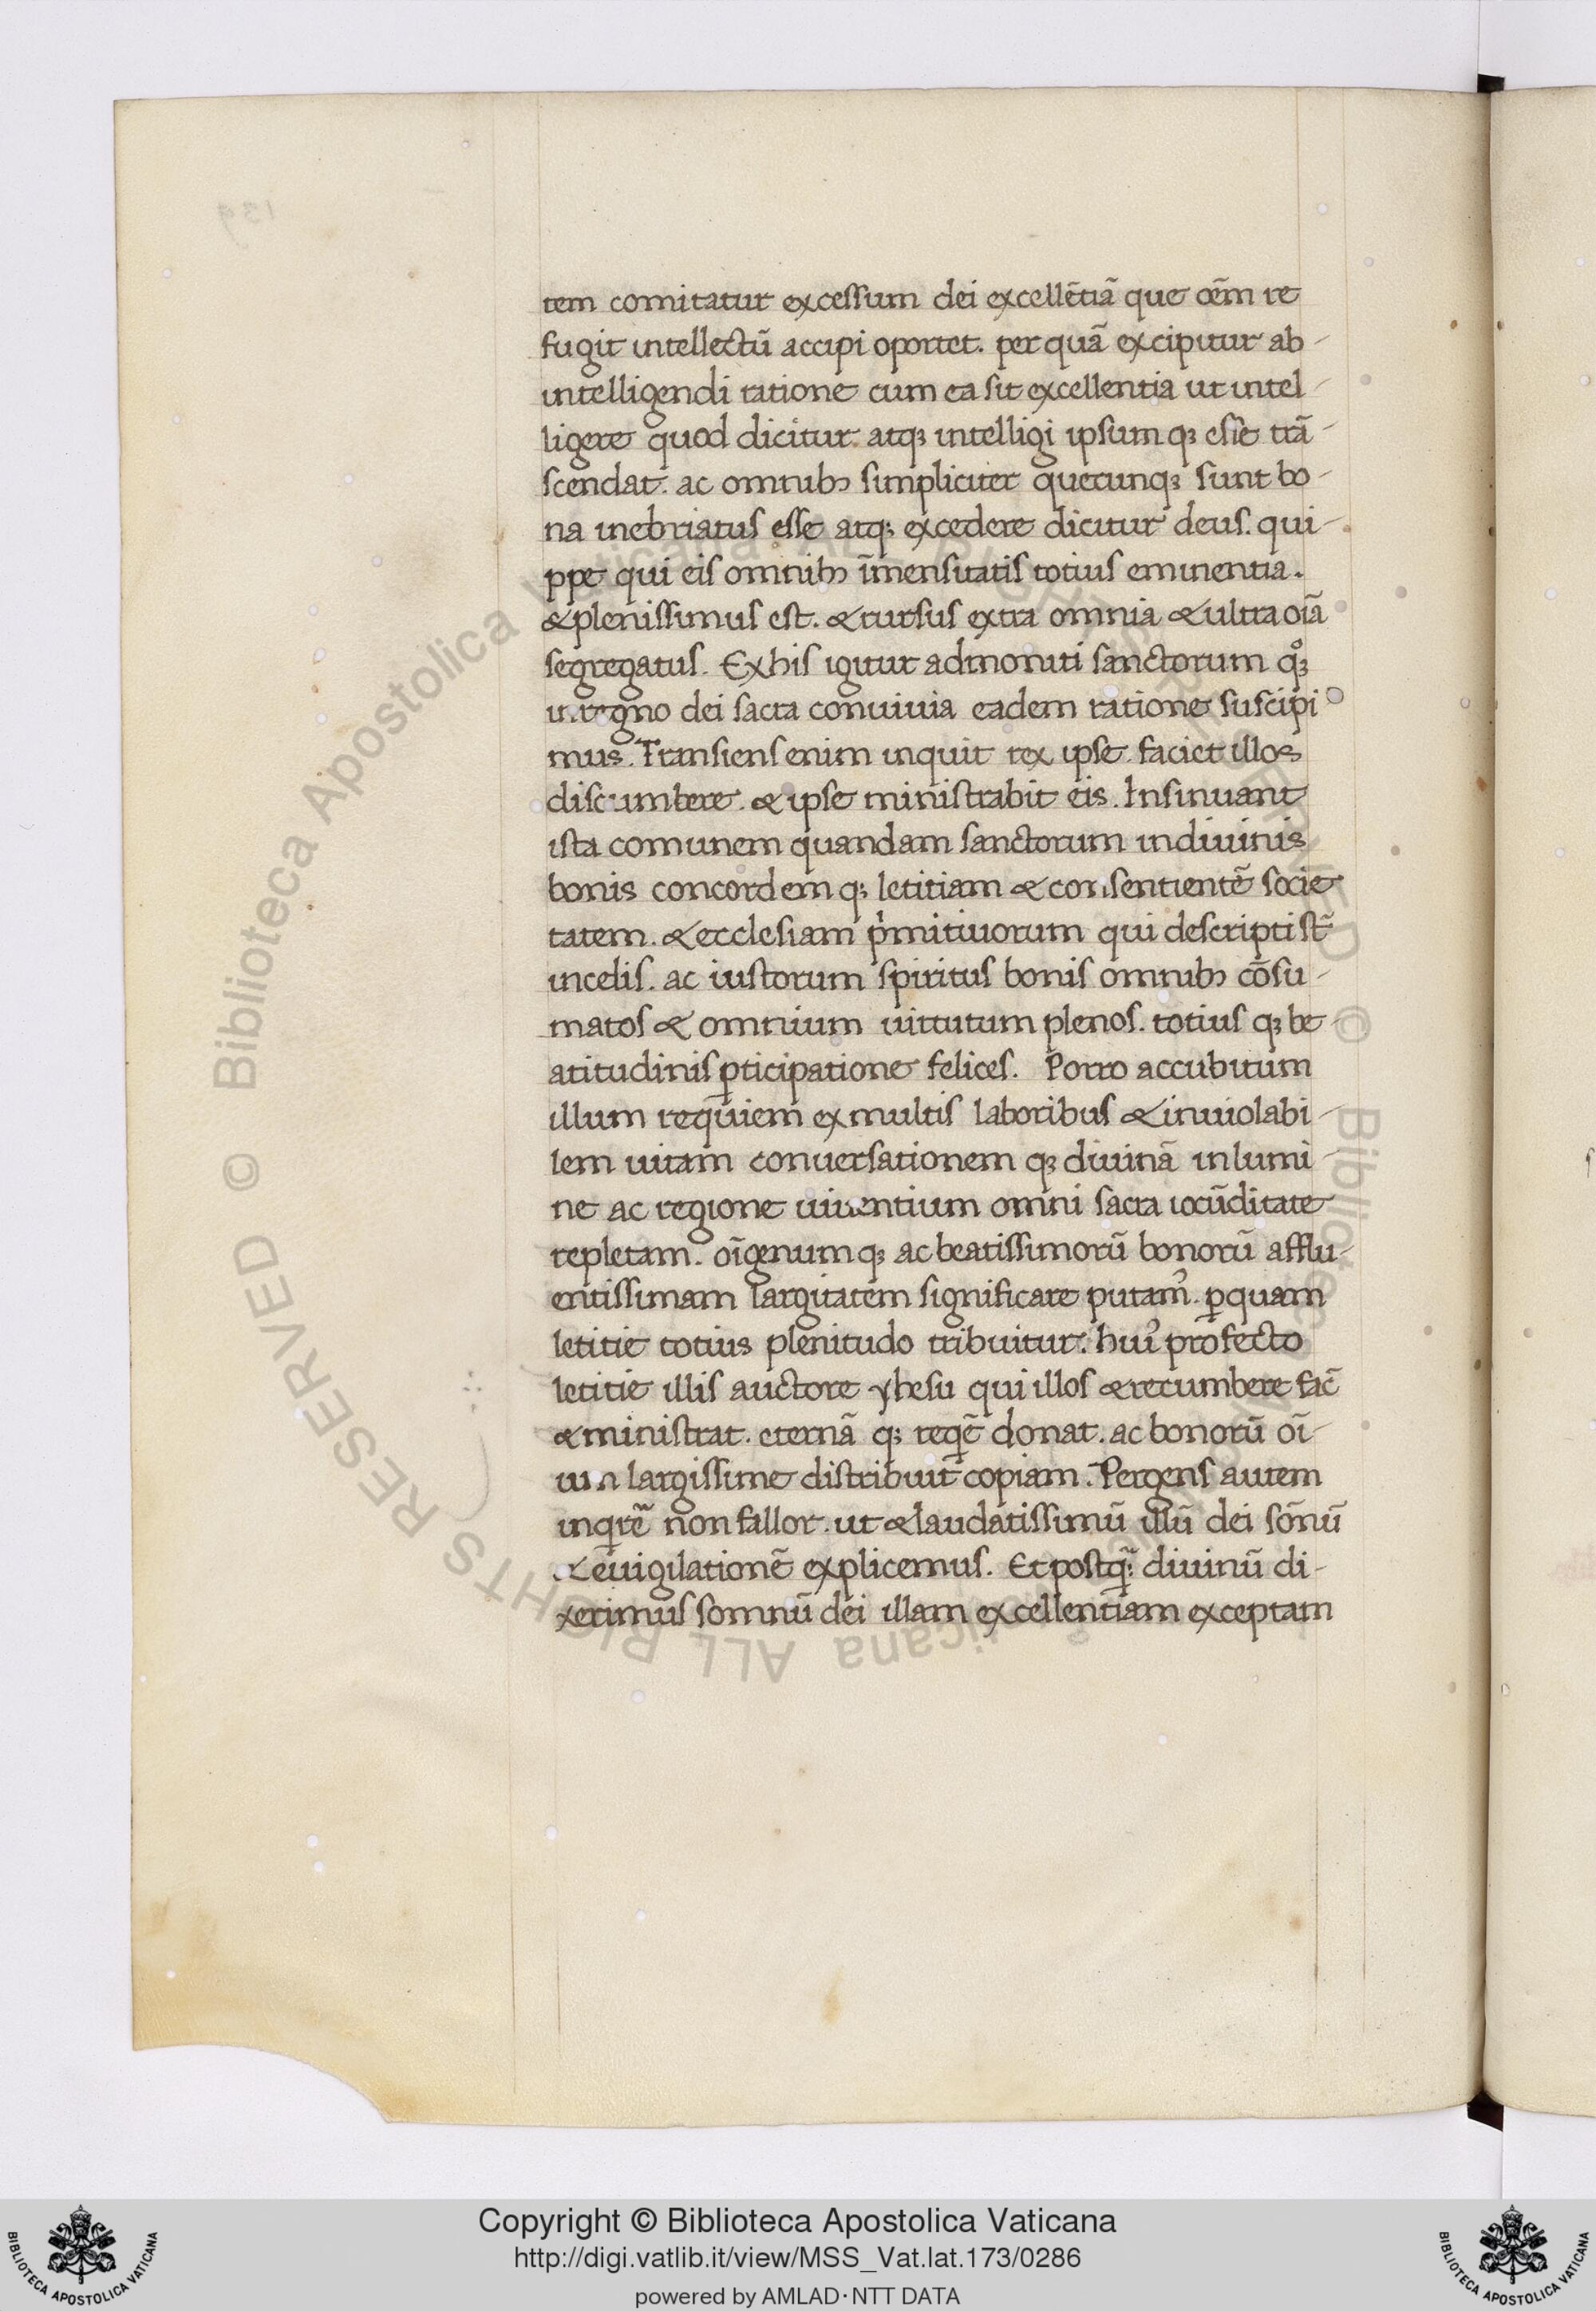 tem comitatur excessum dei excellētiā que oēm re
fugit intellectū accipi oportet. per quā excipitur ab-
intelligendi ratione cum ea sit excellentia ut intel-
ligere quod dicitur. atqꝫ intelligi ipsum qꝫ esse trā-
scendat. ac omnibꝫ simpliciter quecunqꝫ sunt bo-
na inebriatus esse atqꝫ excedere dicitur deus. qui-
ppe qui eis omnibꝫ īmensitatis totius eminentia.
& plenissimus est. & rursus extra omnia & ultra oīa
segregatus. Ex his igitur admoniti sanctorum qͦꝫ
in regno dei sacra conuiuia eadem ratione suscipi
mus. Transiens enim inquit rex ipse. faciet illos
discumbere. & ipse ministrabit eis. Insinuant
ista comunem quandam sanctorum in diuinis
bonis concordem qꝫ letitiam & consentientē socie
tatem. & ecclesiam pͥmitiuorum qui descripti st̄
in celis. ac iustorum spiritus bonis omnibꝫ cōsu-
matos & omnium uirtutum plenos. totius qꝫ be-
atitudinis ꝑticipatione felices. Porro accubitum
illum requiem ex multis laboribus & inuiolabi-
lem uitam conuersationem qꝫ diuinā in lumi-
ne ac regione uiuentium omni sacra iocūditate
repletam. oīgenum qꝫ ac beatissimorū bonorū afflu-
entissimam largitatem significare putamꝰ. ꝑ quam
letitie totius plenitudo tribuitur. huiꝰ profecto
letitie illis auctore yhesu qui illos & recumbere fac̄
& ministrat. eternā qꝫ reqͥē donat. ac bonorū oī-
um largissime distribuit copiam. Pergens autem
inqͥrē non fallor. ut & laudatissimū illū dei sōnū
& euigilationē explicemus. Et postqꝫ diuinū di-
xerimus somnū dei illam excellentiam exceptam
Copyright © Biblioteca Apostolica Vaticana
http://digi.vatlib.it/view/MSS_Vat.lat.173/0286
powered by AMLAD·NTT DATA